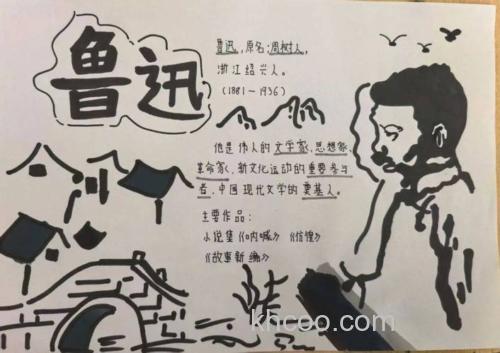 鲁迅
鲁迅,原名:周树人,
浙江绍兴人。
(1881-1936)
他是伟人的文学家,思想家,
革命家,新文化运动的重要参与
者,中国现代文学的奠基人。
主要作品:
小说集《呐喊》《彷徨》
《故事新编》
khcoo.com